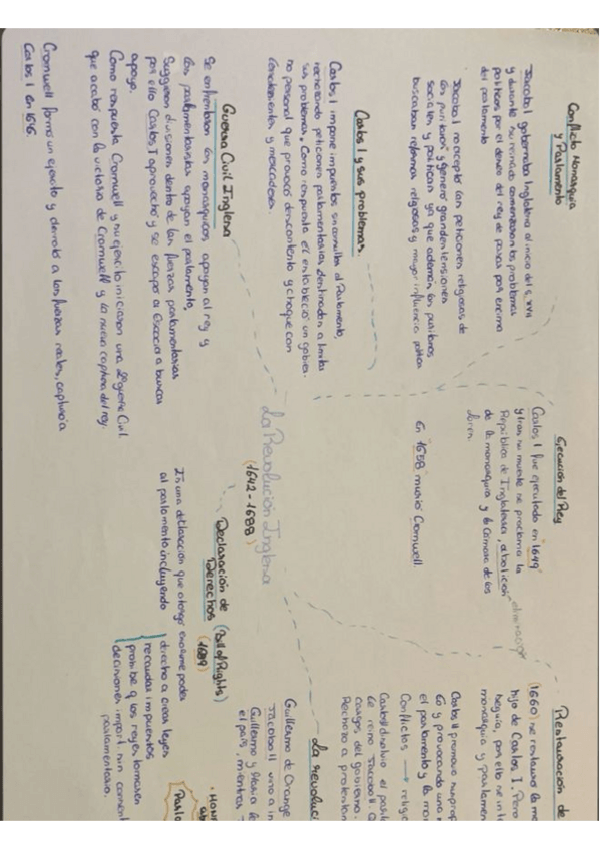 Conflicto Monarquía
y Parlamento
Jacobo I gobernaba Inglaterra al inicio del s. XVII
y durante su reinado comenzaron los problemas
políticos por el deseo del rey de pasar por encima
del parlamento
Jacobo I no aceptó las peticiones religiosas de
los puritanos y generó grandes tensiones
sociales y políticas ya que además los puritanos
buscaban reformas religiosas y mayor influencia política
Carlos I y sus problemas.
Carlos I impone impuestos sin consultar al Parlamento,
rechazando peticiones parlamentarias destinadas a limitar
sus problemas. Como respuesta el entableció un gobier-
no personal que provocó descontento y choque con
terratenientes y mercaderes.
Guerra Civil Inglesa
Se enfrentaron los monarquicos apoyan al rey y
los parlamentaristas apoyan el parlamento,
Surgieron divisiones dentro de las fuerzas parlamentarias
por ello Carlos I aprovechó y se escapó a Escocia a buscar
apoyo.
Como respuesta Cromwell y su ejército iniciaron una 2º guerra Civil
que acabó con la victoria de Cromwell y la nueva captura del rey
Cromwell forma un ejército y derrotó a las fuerzas reales, capturó a
Carlos I en 1646.
Ejecución del Rey
Carlos I fue ejecutado en 1649
y tras su muerte se proclama la
República de Inglaterra, abolición eliminación
de la monarquía y la cámara de los
lores.
En 1658 murió Cromwell.
La Revolución Inglesa
(1642-1688)
Declaración de
Derechos (Bill of Rights)
(1689)
Es una declaración que otorgó enorme poder
al parlamento incluyendo
directo a crear leyes
recaudar impuestos
prohibe q los reyes tomasen
decisiones import. sin consent
parlamentario.
Restauración de
(1660) se restauró la mo
hijo de Carlos I. Pero
seguía, por ello se in
monarquía y parlamen
Carlos II promovió
y provocando una
el parlamento y la mo
Conflictos → relig
Carlos II disolvió el parl
Le reinó Jacobo II.
cargos del gobierno.
Rechazo a protestan
La revoluci
Guillermo de Orange
Jacobo II vino a in
Guillermo y María
el país, mientras
Parla